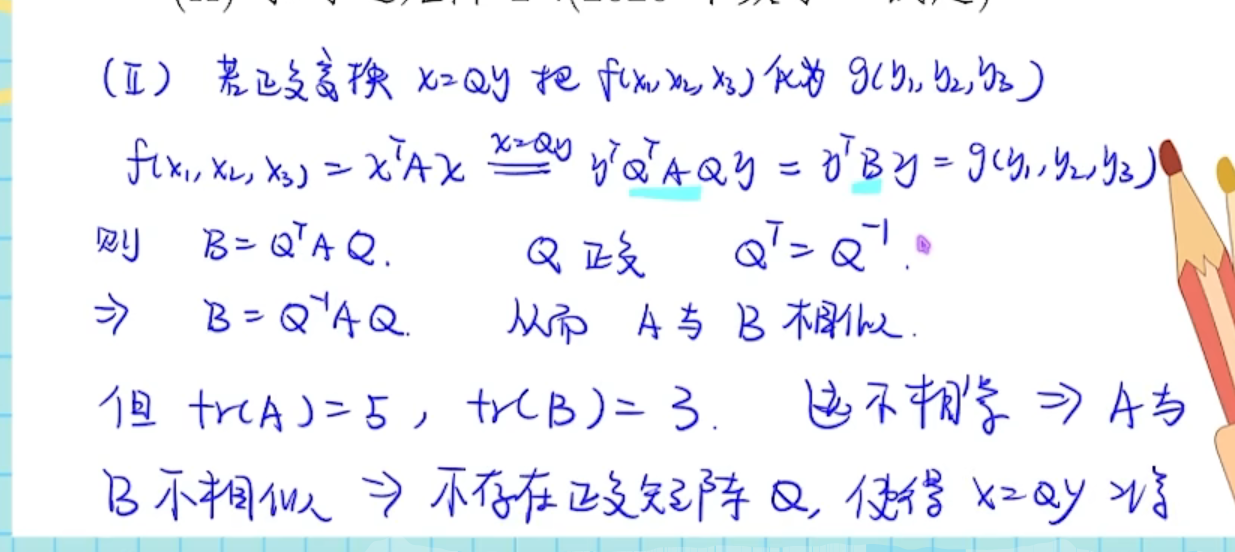 (Ⅱ) 若正交变换 x=Qy 把 f(x₁,x₂,x₃) 化为 g(y₁,y₂,y₃)
f(x₁,x₂,x₃) = xᵀAx \xlongequal{x=Qy} yᵀQᵀAQy = yᵀBy = g(y₁,y₂,y₃)
则 B=QᵀAQ. Q 正交 Qᵀ=Q⁻¹.
⇒ B=Q⁻¹AQ. 从而 A与B相似.
但 tr(A)=5, tr(B)=3. 迹不相等 ⇒ A与
B不相似 ⇒ 不存在正交矩阵 Q, 使得 x=Qy 将